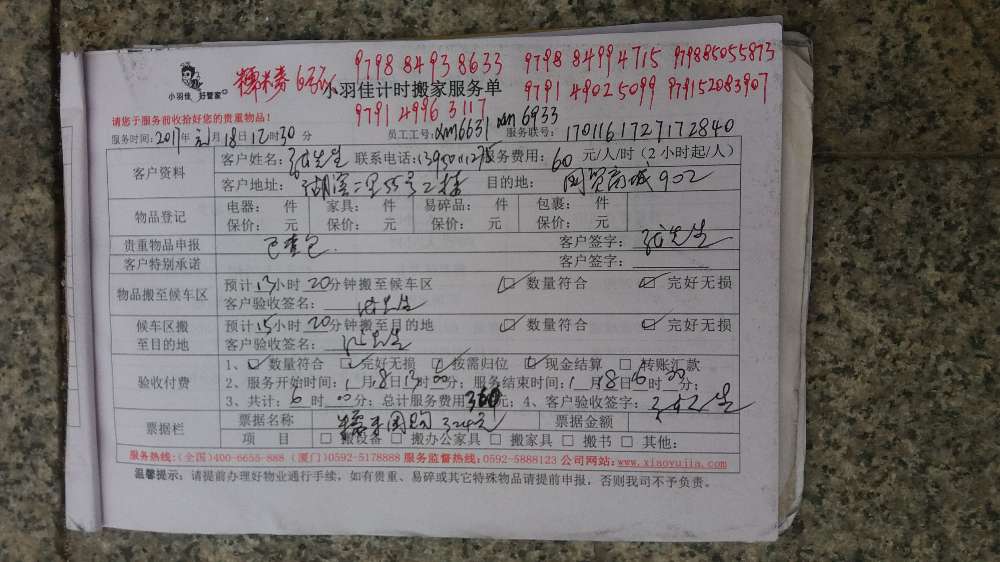 糯米券6张
9798 8493 8633 9798 8499 4715 979885055873
9791 4902 5099 979152083907
9791 4996 3117
小羽佳 好管家
小羽佳计时搬家服务单
请您于服务前收拾好您的贵重物品!
服务时间: 2017年 元月18日12时30分 员工工号: xm6631 xm6933 服务联号: 1701161727172840
客户资料 客户姓名: 张先生 联系电话: 服务费用: 60 元/人/时(2小时起/人)
客户地址: 湖滨二里55号2楼 目的地: 国贸商城902
物品登记 电器: 件 家具: 件 易碎品: 件 包裹: 件
保价: 元 保价: 元 保价: 元 保价: 元
贵重物品申报 已查包 客户签字: 张先生
客户特别承诺 客户签字:
物品搬至候车区 预计13小时20分钟搬至候车区 ☑数量符合 ☑完好无损
客户验收签名: 张先生
候车区搬至目的地 预计15小时20分钟搬至目的地 ☑数量符合 ☑完好无损
客户验收签名: 张先生
验收付费 1、☑数量符合 ☑完好无损 ☑按需归位 ☑现金结算 □转账汇款
2、服务开始时间: 1月18日13时00分; 服务结束时间: 1月18日16时00分;
3、共计: 6时00分; 总计服务费用360元; 4、客户验收签字: 张先生
票据栏 票据名称 糯米团购324元 票据金额
项目 □搬设备 □搬办公家具 □搬家具 □搬书 □其他:
服务热线:(全国)400-6655-888 (厦门)0592-5178888 服务监督热线:0592-5888123 公司网站:www.xiaoyujia.com
温馨提示: 请提前办理好物业通行手续, 如有贵重、易碎或其它特殊物品请提前申报, 否则我司不予负责。